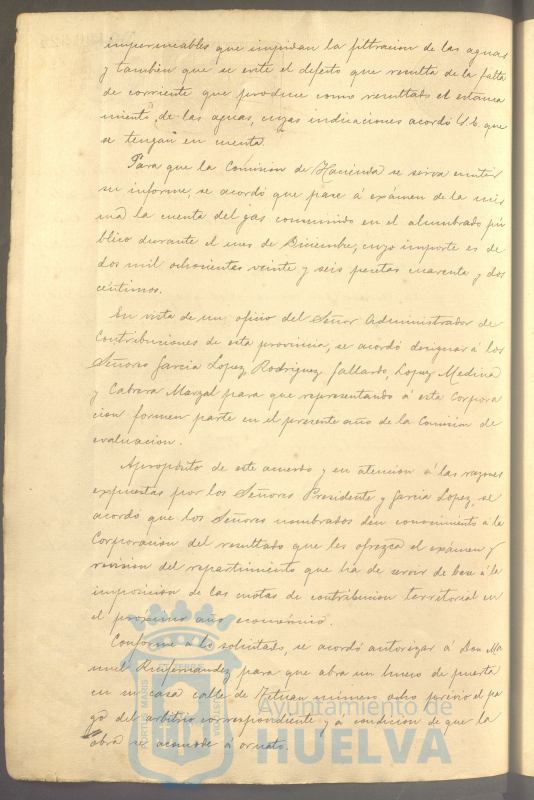 impermeables que impidan la filtracion de las aguas
y tambien que se evite el defecto que resulta de la falta
de corriente que produce como resultado el estanca
miento de las aguas, cuyas indicaciones acordó S.E. que
se tengan en cuenta.
Para que la Comision de Hacienda se sirva emitir
su informe, se acordó que pase á exámen de la mis
ma la cuenta del gas consumido en el alumbrado pú
blico durante el mes de Diciembre, cuyo importe es de
dos mil ochocientas veinte y seis pesetas cuarenta y dos
céntimos.
En vista de un oficio del Señor Administrador de
Contribuciones de esta provincia, se acordó designar á los
Señores Garcia Lopez, Rodriguez Gallardo, Lopez Medina
y Cabrera Marzal para que representando á esta Corpora
cion formen parte en el presente año de la Comision de
evaluacion.
Apropósito de este acuerdo y en atencion á las razones
expuestas por los Señores Presidente y Garcia Lopez, se
acordó que los Señores nombrados den conocimiento á la
Corporacion del resultado que les ofrezca el exámen y
revision del repartimiento que ha de servir de base á la
imposicion de las cuotas de contribucion territorial en
el proximo año económico.
Conforme á lo solicitado, se acordó autorizar á Don Ma
nuel Ruifernandez para que abra un hueco de puerta
en su casa calle de Tetuan número ocho previo el pa
go del arbitrio correspondiente y á condicion de que la
obra se acomode á ornato.
Ayuntamiento de
HUELVA